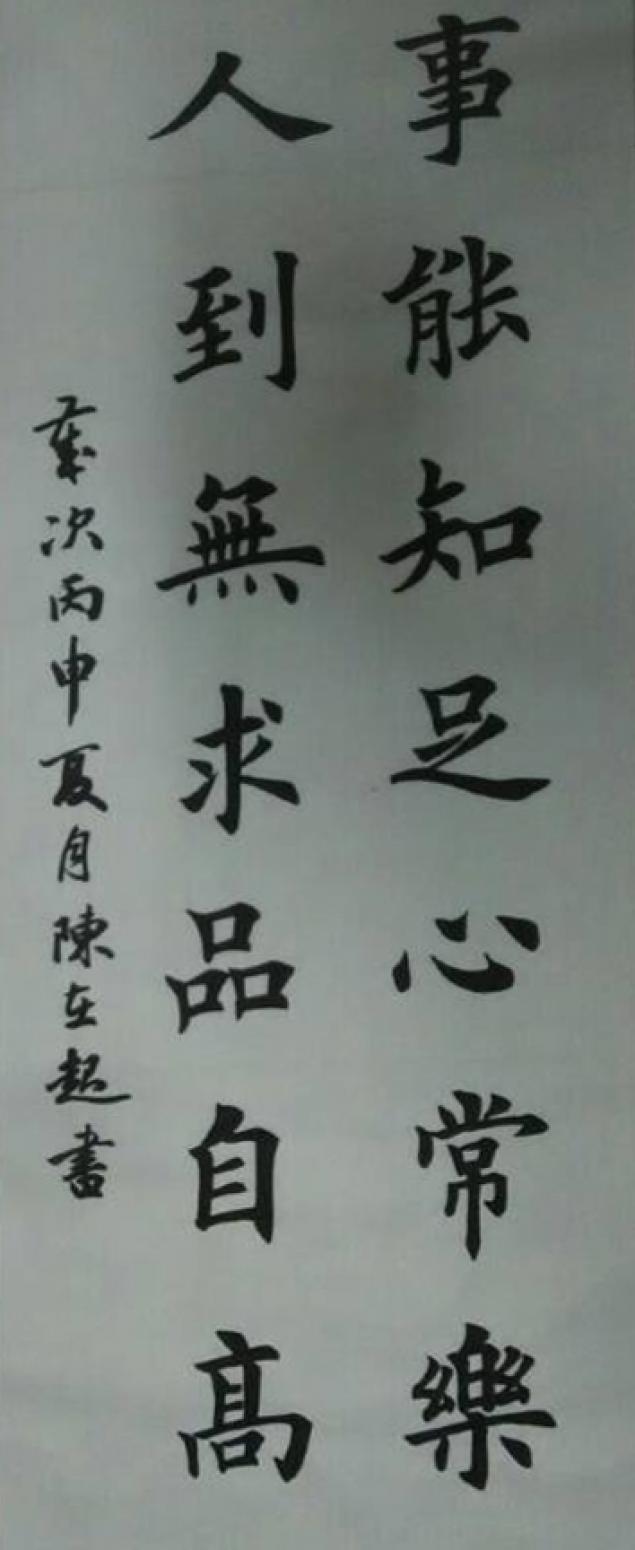 事能知足心常樂
人到無求品自高
歲次丙申夏月陳在起書